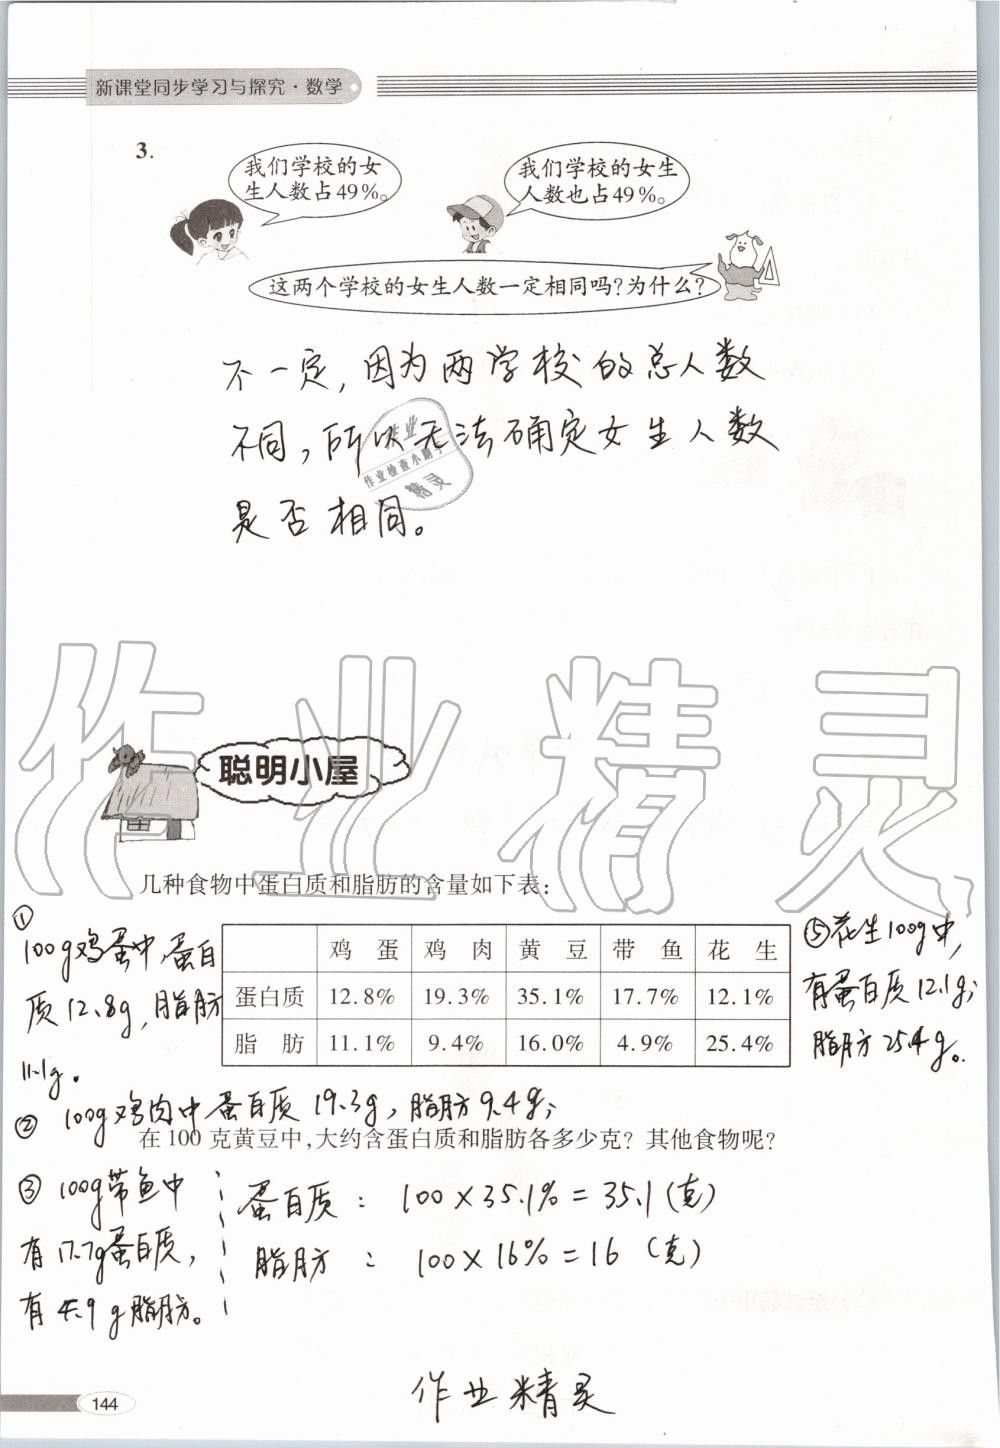 新课堂同步学习与探究·数学
3.
我们学校的女
生人数占49%。
我们学校的女生
人数也占49%。
这两个学校的女生人数一定相同吗?为什么?
不一定,因为两学校的总人数
不同,所以无法确定女生人数
是否相同。
作业
作业检查小助手
精灵
作业精灵
聪明小屋
几种食物中蛋白质和脂肪的含量如下表:
鸡 蛋 鸡 肉 黄 豆 带 鱼 花 生
蛋白质 12.8% 19.3% 35.1% 17.7% 12.1%
脂 肪 11.1% 9.4% 16.0% 4.9% 25.4%
①
100g鸡蛋中,蛋白
质12.8g,脂肪
11.1g。
⑤花生100g中,
有蛋白质12.1g;
脂肪方25.4g。
② 100g鸡肉中蛋白质19.3g,脂肪9.4g;
在100克黄豆中,大约含蛋白质和脂肪各多少克?其他食物呢?
③ 100g带鱼中
有17.7g蛋白质,
有4.9g脂肪。
蛋白质: 100×35.1%=35.1(克)
脂肪: 100×16%=16(克)
作业精灵
144